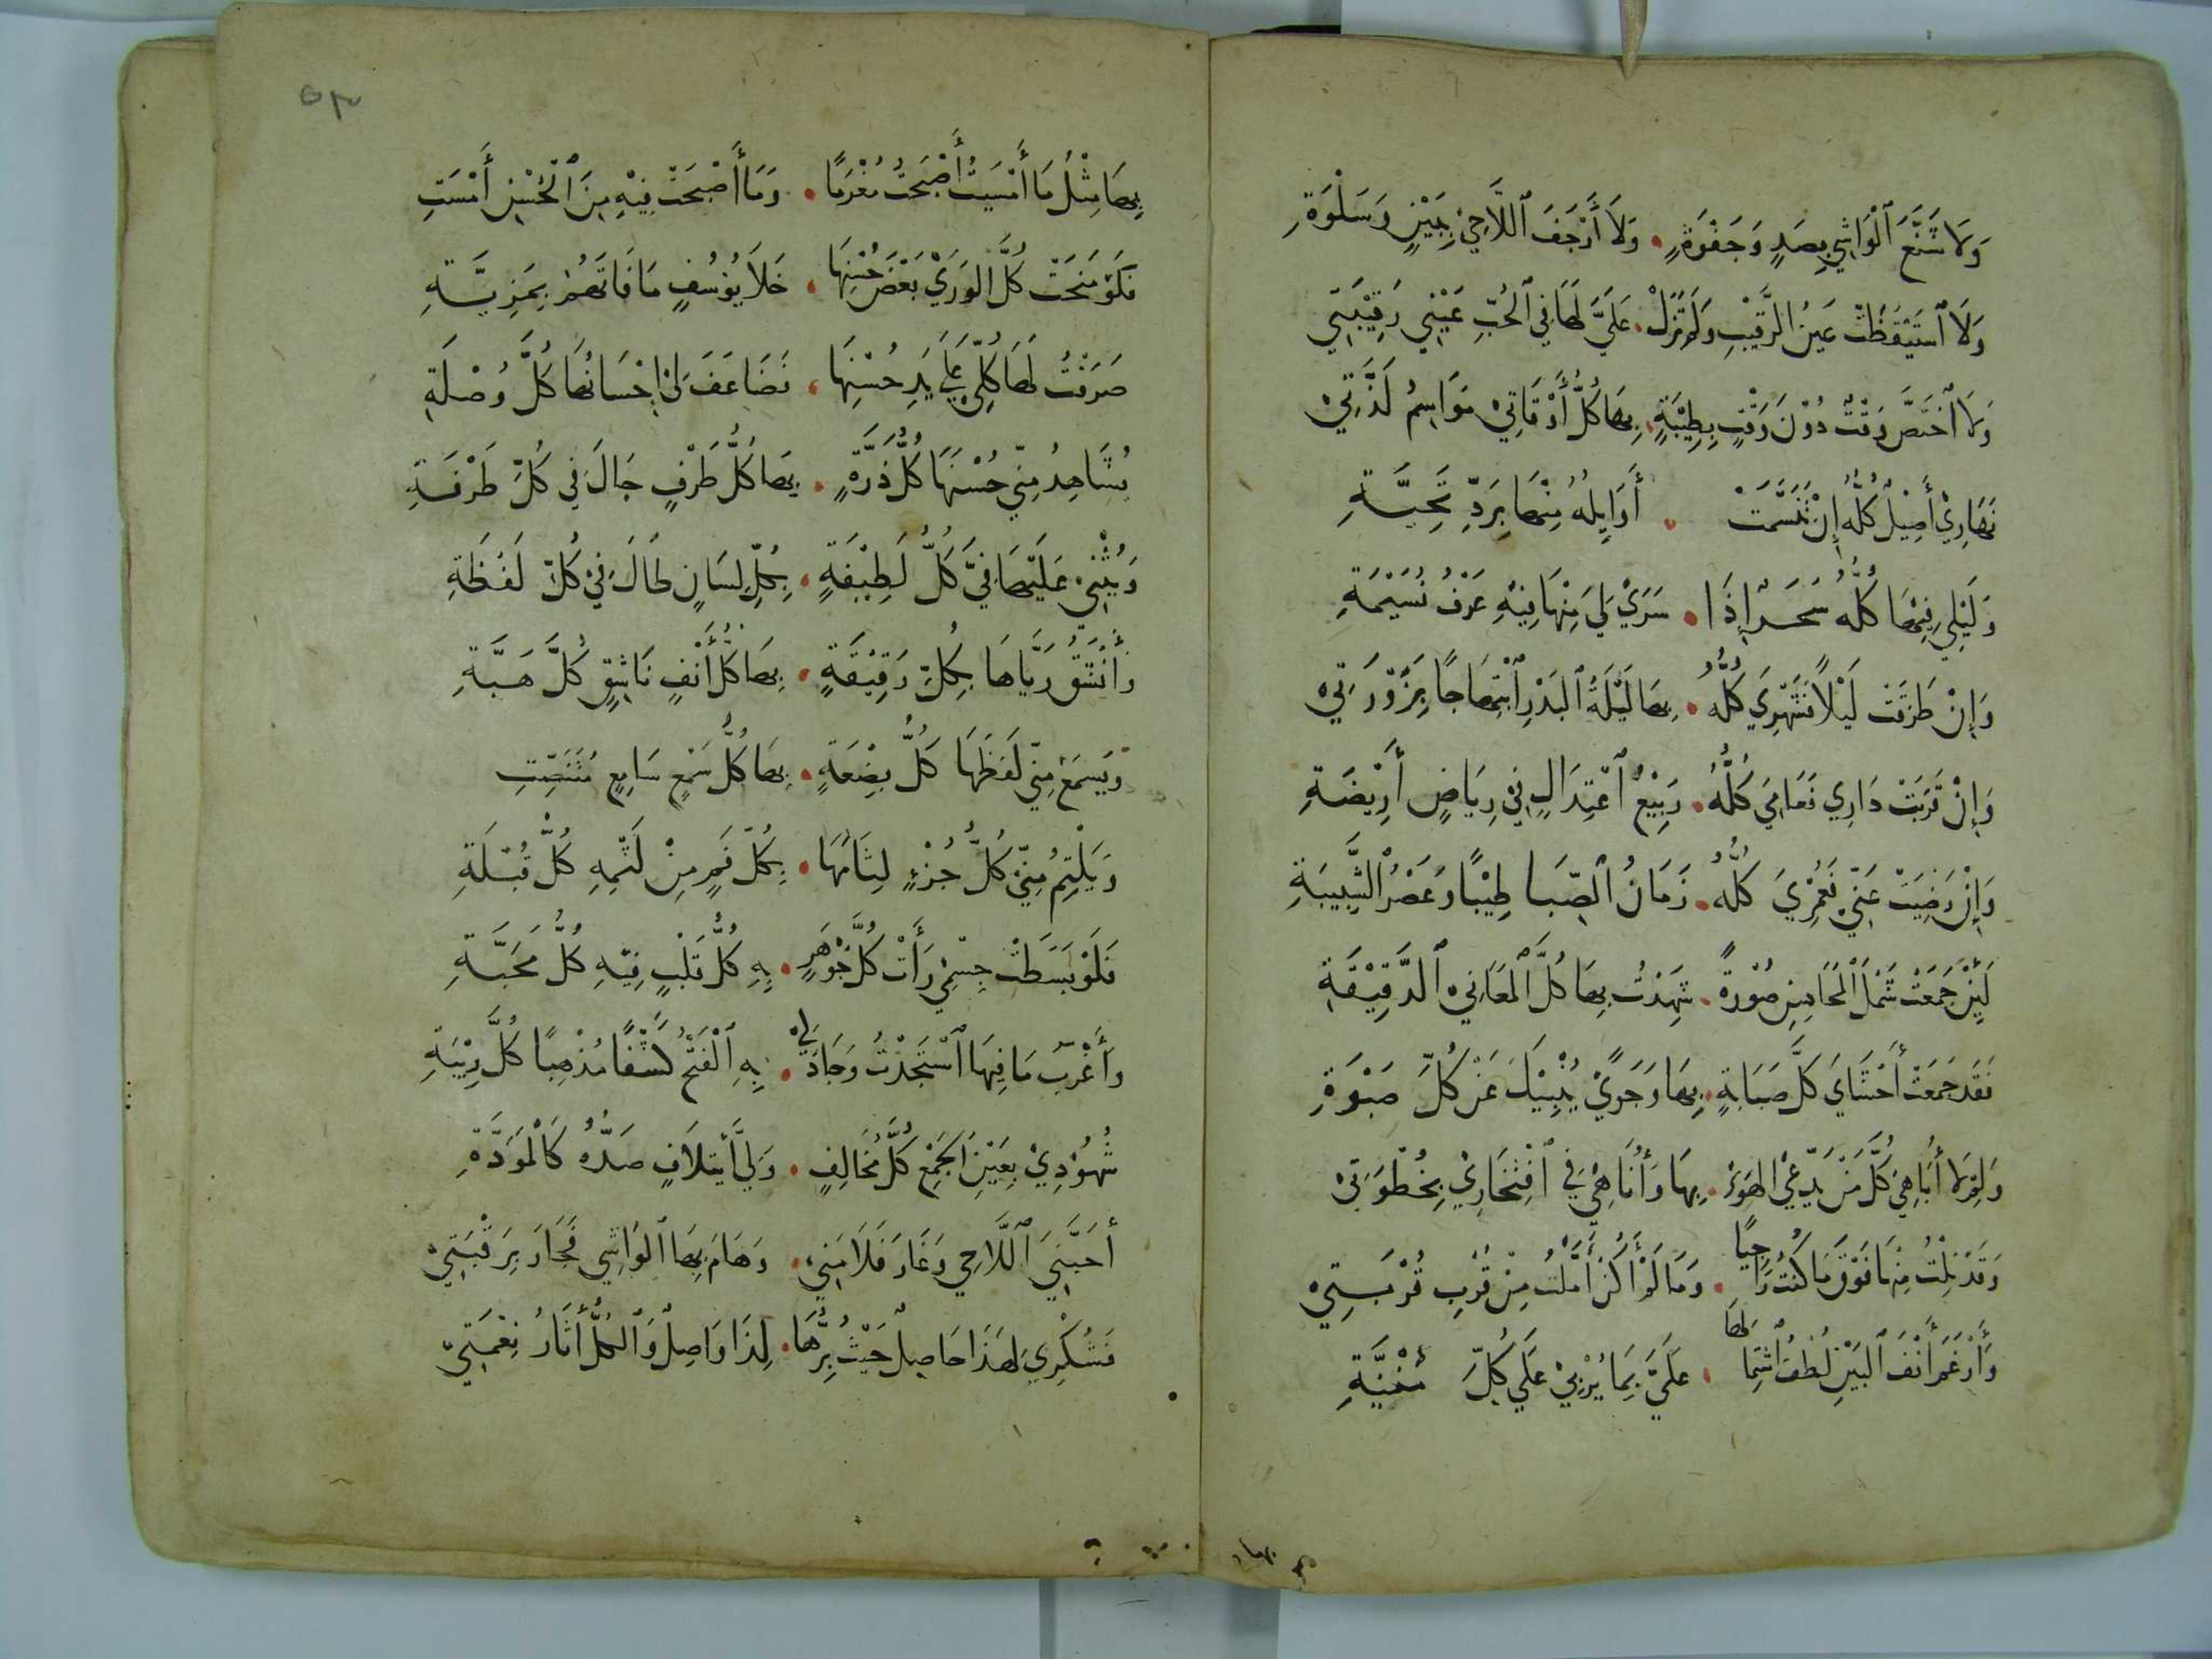 وَلَا شَنَّعَ ٱلْوَاشِي بِصَدٍ وَجَفْوَةٍ . وَلَا أَرْجَفَ ٱللَّاحِيْ بِبَيْنٍ وَسَلْوَةِ
وَلَا ٱسْتَيْقَظَتْ عَيْنُ الرَّقِيْبِ وَلَمْ تَزَلْ . عَلَيَّ لَهَا فِي ٱلْحُبِّ عَيْنِي رَقِيْبَتِي
وَلَا ٱخْتَصَّ وَقْتٌ دُوْنَ وَقْتٍ بِطِيْبَةٍ . بِهَا كُلُّ أَوْقَاتِيْ مَوَاسِمُ لَذَّتِيْ
نَهَارِيْ أَصِيْلٌ كُلُّهُ إِنْ تَنَسَّمَتْ . أَوَايِلُهُ مِنْهَا بِرَدِّ تَحِيَّةِ
وَلَيْلِي فِيْهَا كُلُّهُ سَحَرٌ إِذَا . سَرَيْ لِيَ مِنْهَا فِيْهِ عَرْفُ نُسَيْمَةِ
وَإِنْ طَرَقَتْ لَيْلًا فَشَهْرِيَ كُلُّهُ . بِهَا لَيْلَةُ ٱلْبَدْرِ ٱبْتِهَاجًا بِزَوْرَتِيْ
وَإِنْ قَرُبَتْ دَارِي فَعَامِيَ كُلُّهُ . رَبِيْعُ ٱعْتِدَالٍ فِيْ رِيَاضٍ أَرِيْضَةِ
وَإِنْ رَضِيَتْ عَنِّيْ فَعُمْرِيَ كُلُّهُ . زَمَانُ ٱلصِّبَا طِيْبًا وَعَصْرُ الشَّبِيبَةِ
لَئِنْ جَمَعَتْ شَمْلَ ٱلْمَحَاسِنِ صُوْرَةً . شَهِدْتُ بِهَا كُلَّ ٱلْمَعَانِيْ ٱلدَّقِيْقَةِ
فَقَدْ جَمَعَتْ أَحْشَايَ كُلَّ صَبَابَةٍ . بِهَا وَجَوًيْ يُنْبِيْكَ عَنْ كُلِّ صَبْوَةِ
وَلِمْ لَا أُبَاهِيْ كُلَّ مَنْ يَدَّعِيْ الهَوَيْ . بِهَا وَأُنَاهِيْ فِي ٱفْتِخَارِيْ بِحُظْوَتِيْ
وَقَدْ نِلْتُ مِنْهَا فَوْقَ مَا كُنْتُ رَاجِيًا . وَمَا لَمْ أَكُنْ أَمَّلْتُ مِنْ قُرْبِ قُرْبَتِيْ
وَأَرْغَمَ أَنْفَ ٱلْبَيْنِ لُطْفُ ٱشْتِمَالِهَا . عَلَيَّ بِمَا يُرْبِيْ عَلَي كُلِّ مُنْيَةِ
٥٣
بِهَا مِثْلُ مَا أَمْسَيْتُ أَصْبَحْتُ مُغْرَمًا . وَمَا أَصْبَحَتْ فِيْهِ مِنَ ٱلْحُسْنِ أَمْسَتِ
فَلَوْ مَنَحَتْ كُلَّ الوَرَيْ بَعْضَ حُسْنِهَا . خَلَا يُوْسُفٍ مَا فَاتَهُمْ بِمَزِيَّةِ
صَرَفْتُ لَهَا كُلِّيْ عَلَيَ يَدِ حُسْنِهَا . فَضَاعَفَ لِيْ إِحْسَانُهَا كُلَّ وُصْلَةِ
يُشَاهِدُ مِنِّي حُسْنَهَا كُلُّ ذَرَّةٍ . بِهَا كُلُّ طَرْفٍ جَالَ فِي كُلِّ طَرْفَةِ
وَيُثْنِيْ عَلَيْهَا فِيَّ كُلُّ لَطِيْفَةٍ . بِكُلِّ لِسَانٍ طَالَ فِيْ كُلِّ لَفْظَةِ
وَأَنْشَقُ رَيَّاهَا بِكُلِّ رَقِيْقَةٍ . بِهَا كُلُّ أَنْفٍ نَاشِقٍ كُلَّ هَبَّةِ
وَيَسْمَعُ مِنِّي لَفْظَهَا كُلُّ بِضْعَةٍ . بِهَا كُلُّ سَمْعٍ سَامِعٍ مُتَنَصِّتِ
وَيَلْثِمُ مِنِّيْ كُلُّ جُزْءٍ لِثَامَهَا . بِكُلِّ فَمٍ مِنْ لَثْمِهِ كُلُّ قُبْلَةِ
فَلَوْ بَسَطَتْ جِسْمِيْ رَأَتْ كُلَّ جَوْهَرٍ . بِهِ كُلُّ قَلْبٍ فِيْهِ كُلُّ مَحَبَّةِ
وَأَغْرَبُ مَا فِيهَا ٱسْتَجَدْتُ وَجَادَ لِيْ . بِهِ ٱلْفَتْحُ كَشْفًا مُذْهِبًا كُلَّ رِيْبَةِ
شُهُوْدِيْ بِعَيْنِ ٱلجَمْعِ كُلَّ مُخَالِفٍ . وَلِيَّ أْيتِلَافٍ صَدُّهُ كَالْمَوَدَّةِ
أَحَبَّنِيَ ٱللَّاحِي وَغَارَ فَلَامَنِيْ . وَهَامَ بِهَا ٱلْوَاشِي فَجَارَ بِرَقْبَتِيْ
فَشُكْرِيْ لِهَذَا حَاصِلٌ حَيْثُ بِرُّهَا . لِذَا وَاصِلٌ وَٱلكُلُّ أَثَارُ نِعْمَتِيْ